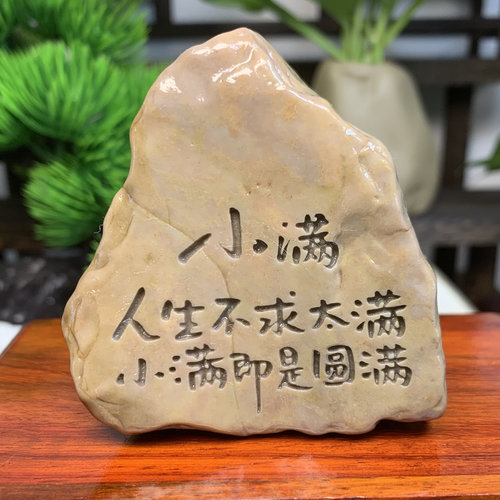 小满
人生不求太满
小满即是圓满